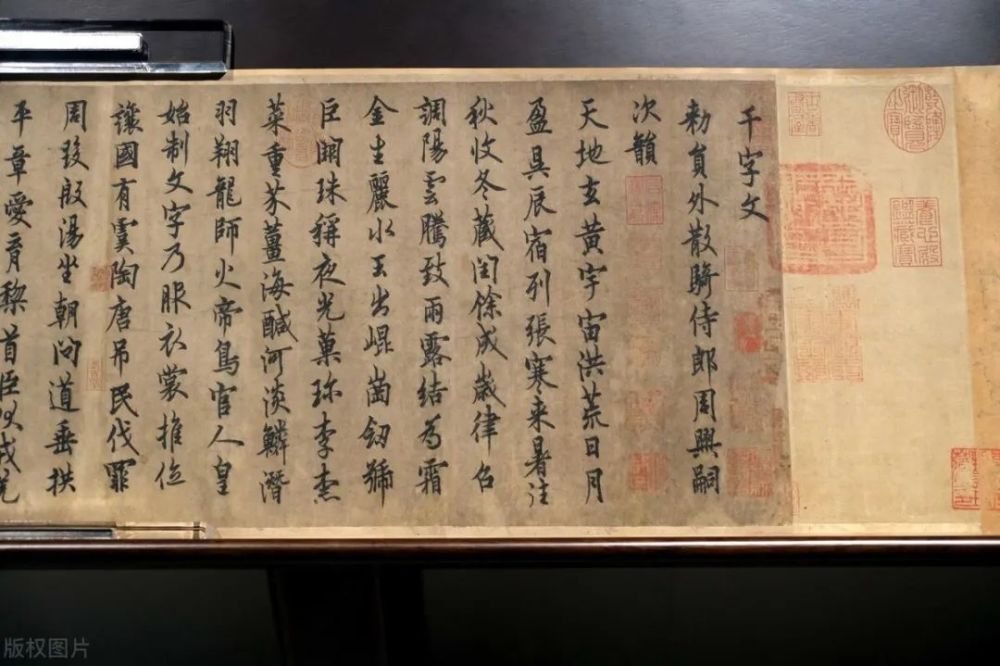 千字文
勑員外散騎侍郎周興嗣
次韻
天地玄黃宇宙洪荒日月
盈昃辰宿列張寒来暑往
秋收冬藏閏餘成歲律召
調陽雲騰致雨露結為霜
金生麗水玉出崐崗劒號
巨闕珠稱夜光菓珎李柰
菜重芥薑海醎河淡鱗潛
羽翔龍師火帝鳥官人皇
始制文字乃服衣裳推位
讓國有虞陶唐吊民伐罪
周發殷湯坐朝問道垂拱
平章愛育黎首臣伏戎羌
版权图片